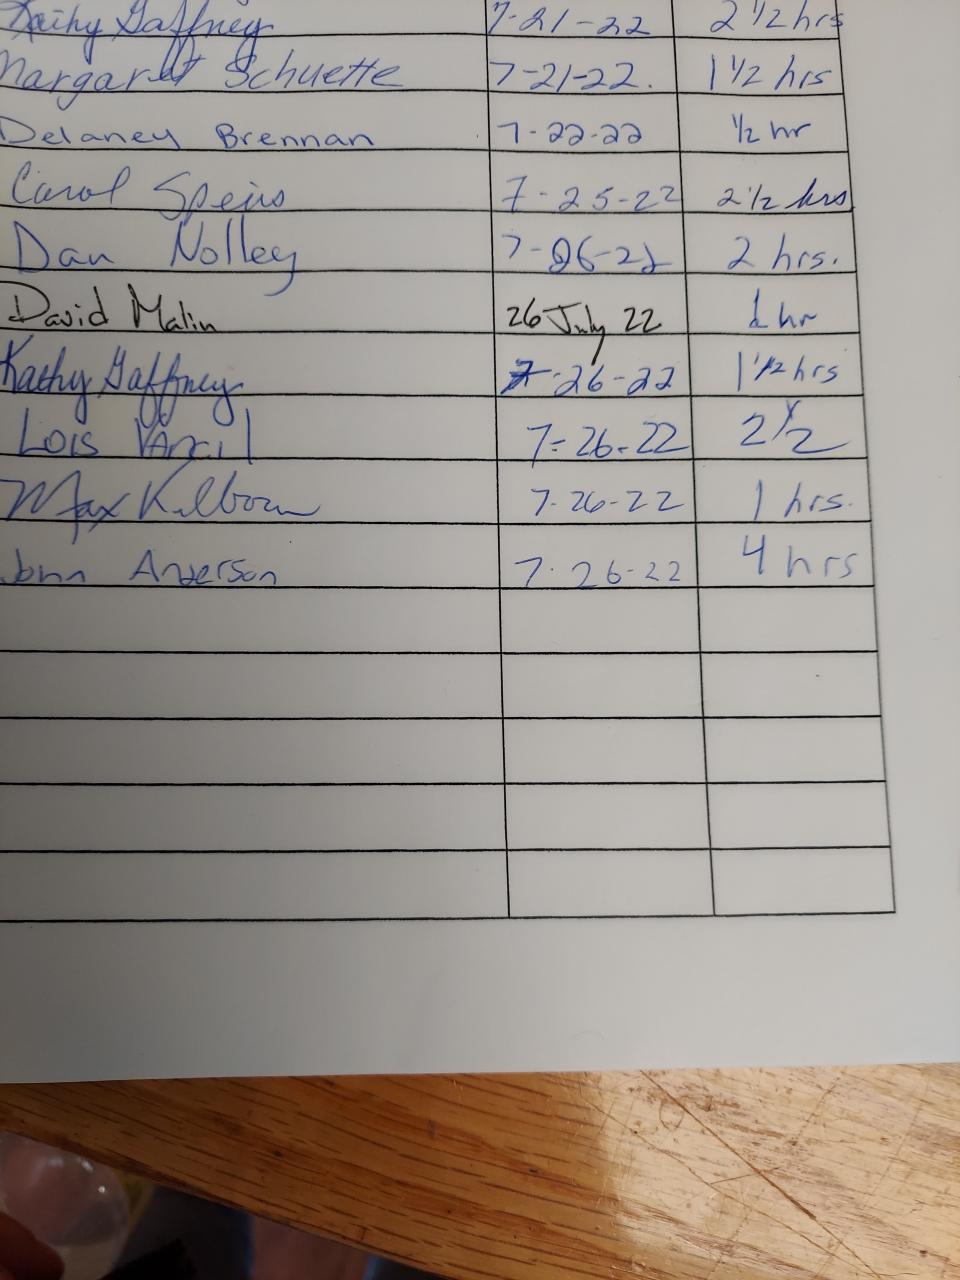 Kathy Gaffney 7-21-22 2 1/2 hrs
Margaret Schuette 7-21-22. 1 1/2 hrs
Delaney Brennan 7-22-22 1/2 hr
Carol Speirs 7-25-22 2 1/2 hrs
Dan Nolley 7-26-22 2 hrs.
David Malin 26 July 22 1 hr
Kathy Gaffney 7-26-22 1 1/2 hrs
Lois 7-26-22 2 1/2
Max Kilbourn 7-26-22 1 hrs.
John Anderson 7-26-22 4 hrs